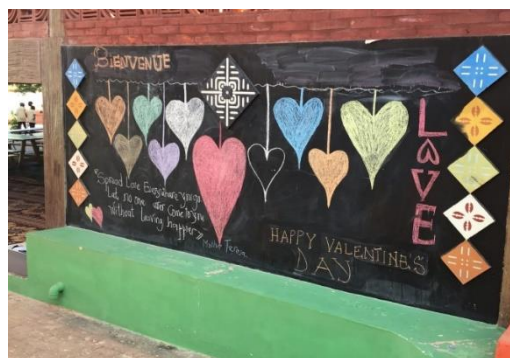 BIENVENUE
LOVE
"Spread Love Everywhere you go
Let no one ever come to you
without leaving happier"
Mother Teresa
HAPPY VALENTINE'S
DAY